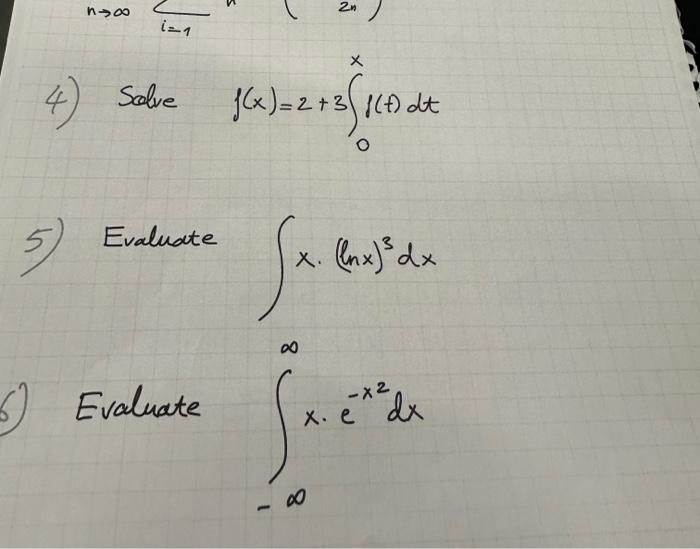 n→∞ i=1 n ( 2n )
4) Solve f(x)=2+3∫₀ˣ f(t) dt
5) Evaluate ∫ x. (lnx)³ dx
6) Evaluate ∫₋∞^∞ x. e^(-x²) dx